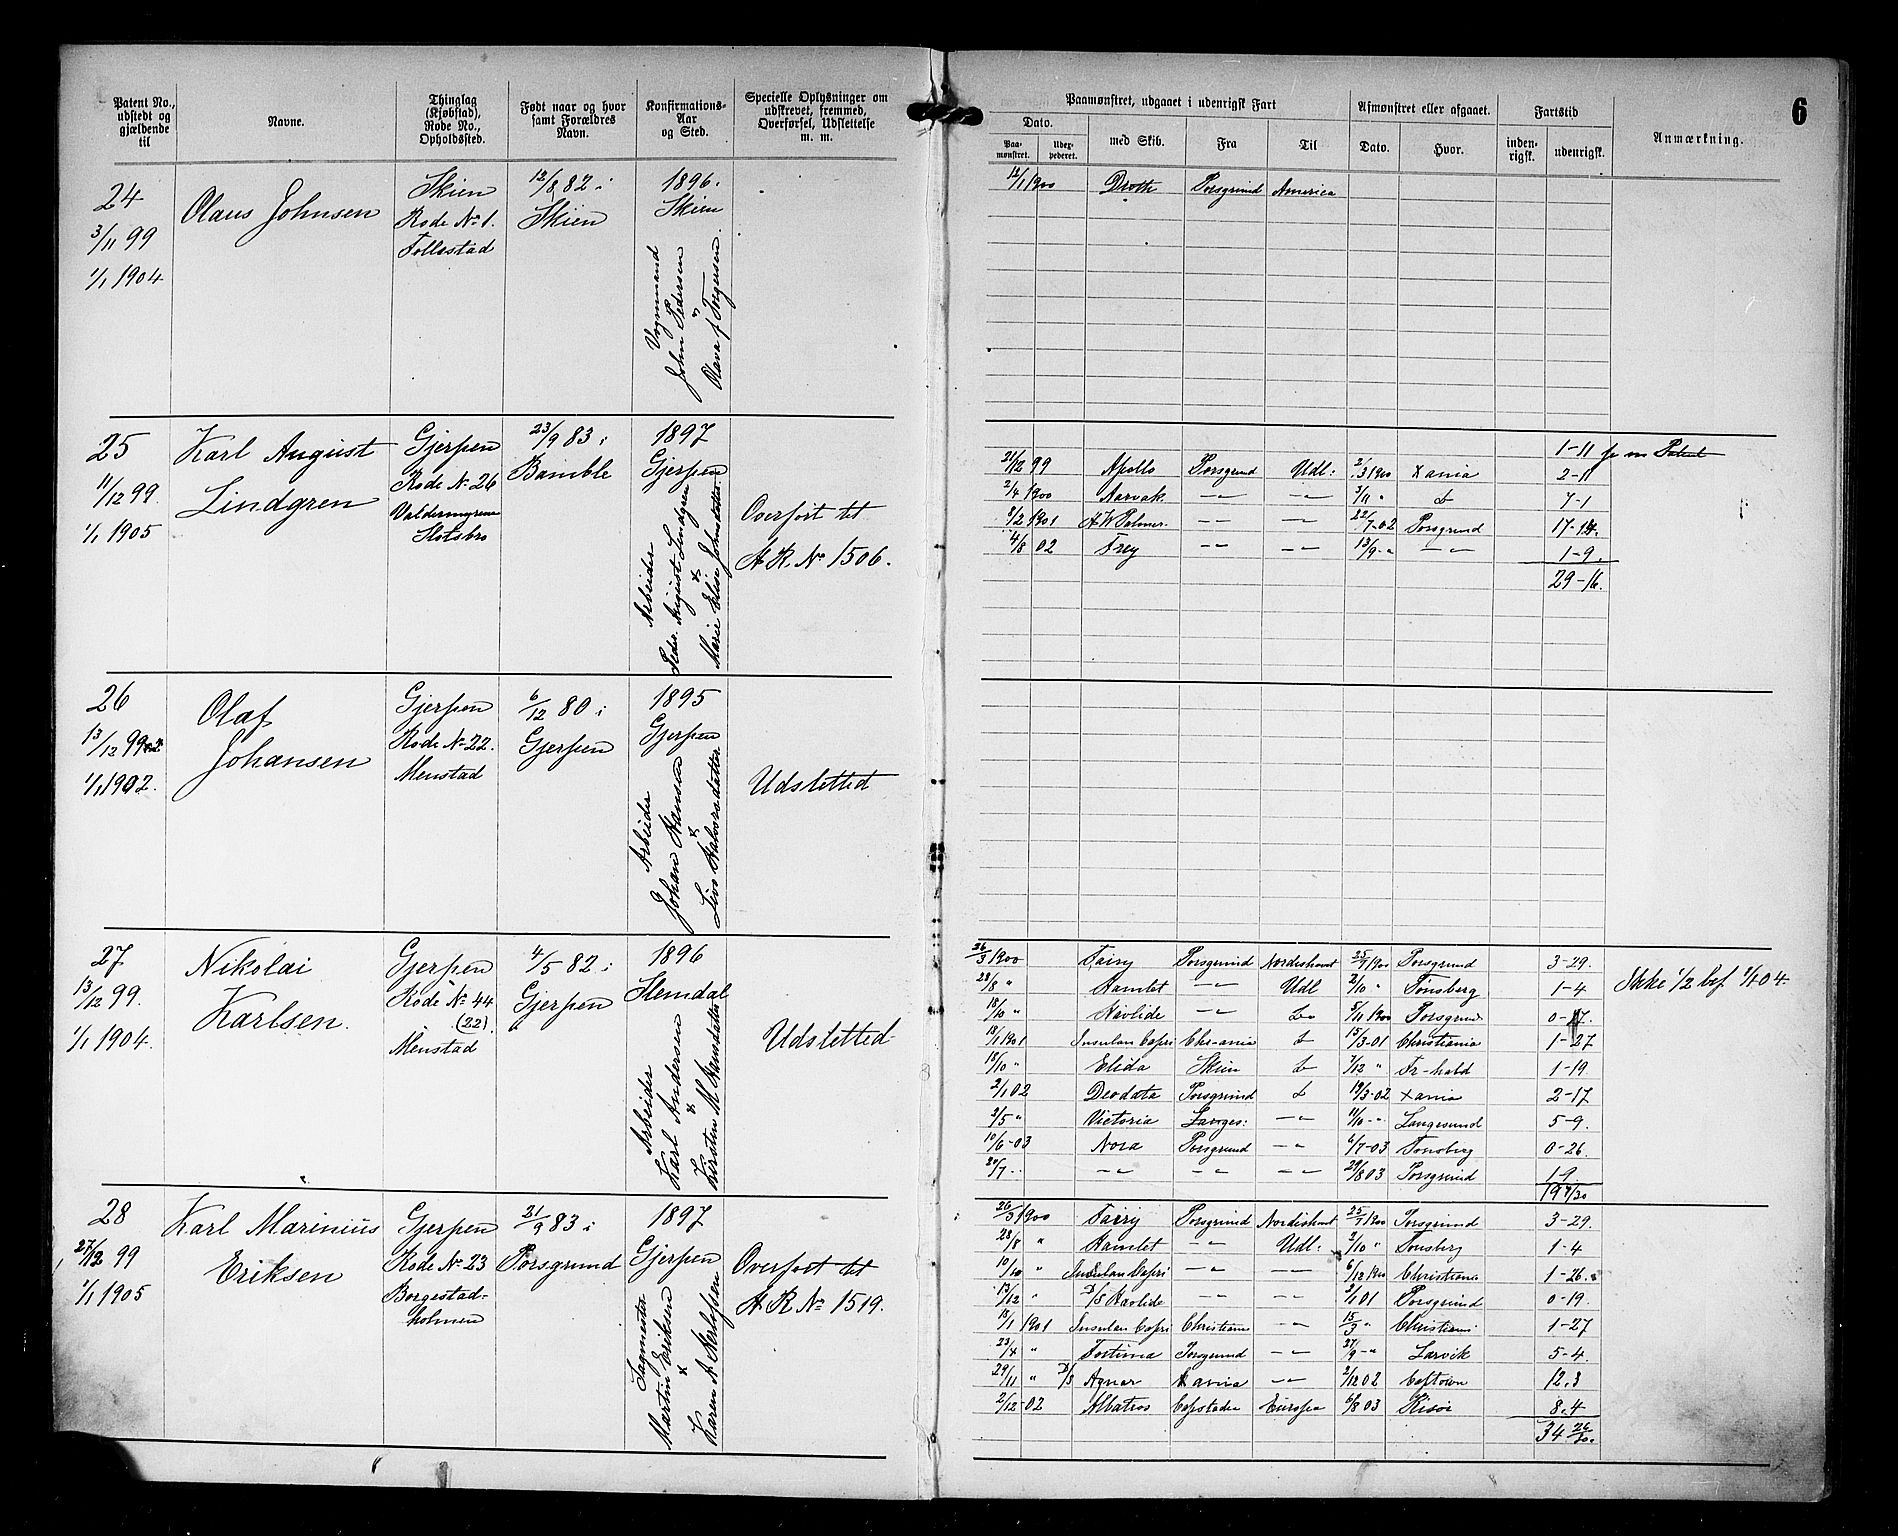 6
Patent No., udstedt og gjældende til
Navne.
Thinglag (Kjøbstad), Rode No., Opholdssted.
Født naar og hvor samt Forældres Navn.
Konfirmations-Aar og Sted.
Specielle Oplysninger om udskrevet, fremmed, Overførsel, Udslettelse m. m.
Paamønstret, udgaaet i udenrigsk Fart
Dato.
Paa-mønstret.
med Skib.
Fra
Til
Afmønstret eller afgaaet.
Dato.
Hvor.
Fartstid
inden-rigsk.
udenrigsk.
Anmærkning.
24
3/11 99
1/1 1904
Olaus Johnsen
Skien
Rode No 1.
Follestad
12/8 82 i
Skien
1896.
Skien
Vognmand
John Pedersen
Olava f Torgersen.
12/1 1900 Droth Porsgrund America
25
11/12 99.
1/1 1905
Karl August
Lindgren
Gjerpen
Rode No 26
Valdermyrene
Slotsbro
23/9 83 i
Bamble
1897
Gjerpen
Arbeider
Peder August Lindgren
&
Marie Elise Johnsdatter
Overført til
A R. No 1506.
1-11
21/12 99 Apollo Porsgrund Udl: 2/3 1900 Xania 2-11
2/4 1900 Aarvak — — 3/11 " 7-1
8/2 1901 A W Palmer — — 22/7-02 Porsgrund 17-14
4/8 02 Frey — — 13/9 - — 1-9.
29-16.
26
13/12 99
1/1 1902.
Olaf
Johansen
Gjerpen
Rode No 22.
Menstad
6/12 80 i
Gjerpen
1895
Gjerpen
Arbeider
Johan Hansen
&
Live Halvorsdatter
Udsletted
27
13/12 99.
1/1 1904.
Nikolai
Karlsen.
Gjerpen
Rode No 44
(22)
Menstad
4/5 82 i
Gjerpen
1896
Slemdal
Arbeider
Karl Andersen
&
Kirsten M Hansdatter
Udsletted
26/3 1900 Fairy Porsgrund Nordishavet 25/9 1900 Porsgrund 3-29.
28/8 " Hamlet — Udl 2/10 " Tønsberg 1-4
Ikke 1/2 bef 1/1 04.
18/10 " Havlide — 5/11 1900 Porsgrund 0-17
18/1 1901 Insulan Capri Chr-ania 15/3-01 Christiania 1-27
18/10 " Elida Skien 7/12 " Fr-hald 1-19.
2/1 02 Deodata Porsgrund 19/3-02 Xania 2-17
2/5 " Victoria Langes: — 11/10 - Langesund 5-9
10/6-03 Nora Porsgrund — 6/7-03 Tønsberg 0-26
20/7 - — — — 29/8 03 Porsgrund 1-9
19 7/30
28
27/12 99
1/1 1905
Karl Marinius
Eriksen
Gjerpen
Rode No 23
Borgestad-
holmen
21/9 83 i
Porsgrund
1897
Gjerpen
Sagmester
Martin Eriksen
&
Karen A Karlsen
Overført til
A R. No 1519.
26/3 1900 Fairy Porsgrund Nordishavet 25/7 1900 Porsgrund 3-29.
28/8 " Hamlet — Udl: 2/10 " Tønsberg 1-4
10/10 " Insulan Capri — — 6/12 1900 Christiania 1-26.
13/12 " D/S Havlide — — 3/1 01 Porsgrund 0-19.
13/1 1901 Insulan Capri Christiania — 15/3 " Christiania 1-27
23/4 " Fortuna Porsgrund — 27/9 -" Larvik 5-4.
29/11 " D/S Agnar Xania — 2/12 02 Captown 12.3
2/12-02 Albatros Capstaden Europa 6/8 03 Risør 8.4
34 26/30.